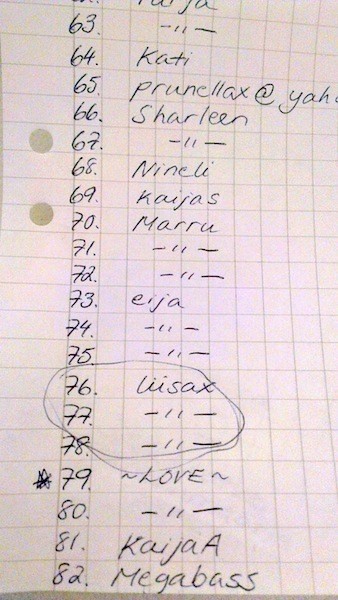 63. -"-
64. Kati
65. prunellax@yah
66. Sharleen
67. -"-
68. Nineli
69. Kaijas
70. Marru
71. -"-
72. -"-
73. eija
74. -"-
75. -"-
76. liisax
77. -"-
78. -"-
79. ~LOVE~
80. -"-
81. KaijaA
82. Megabass